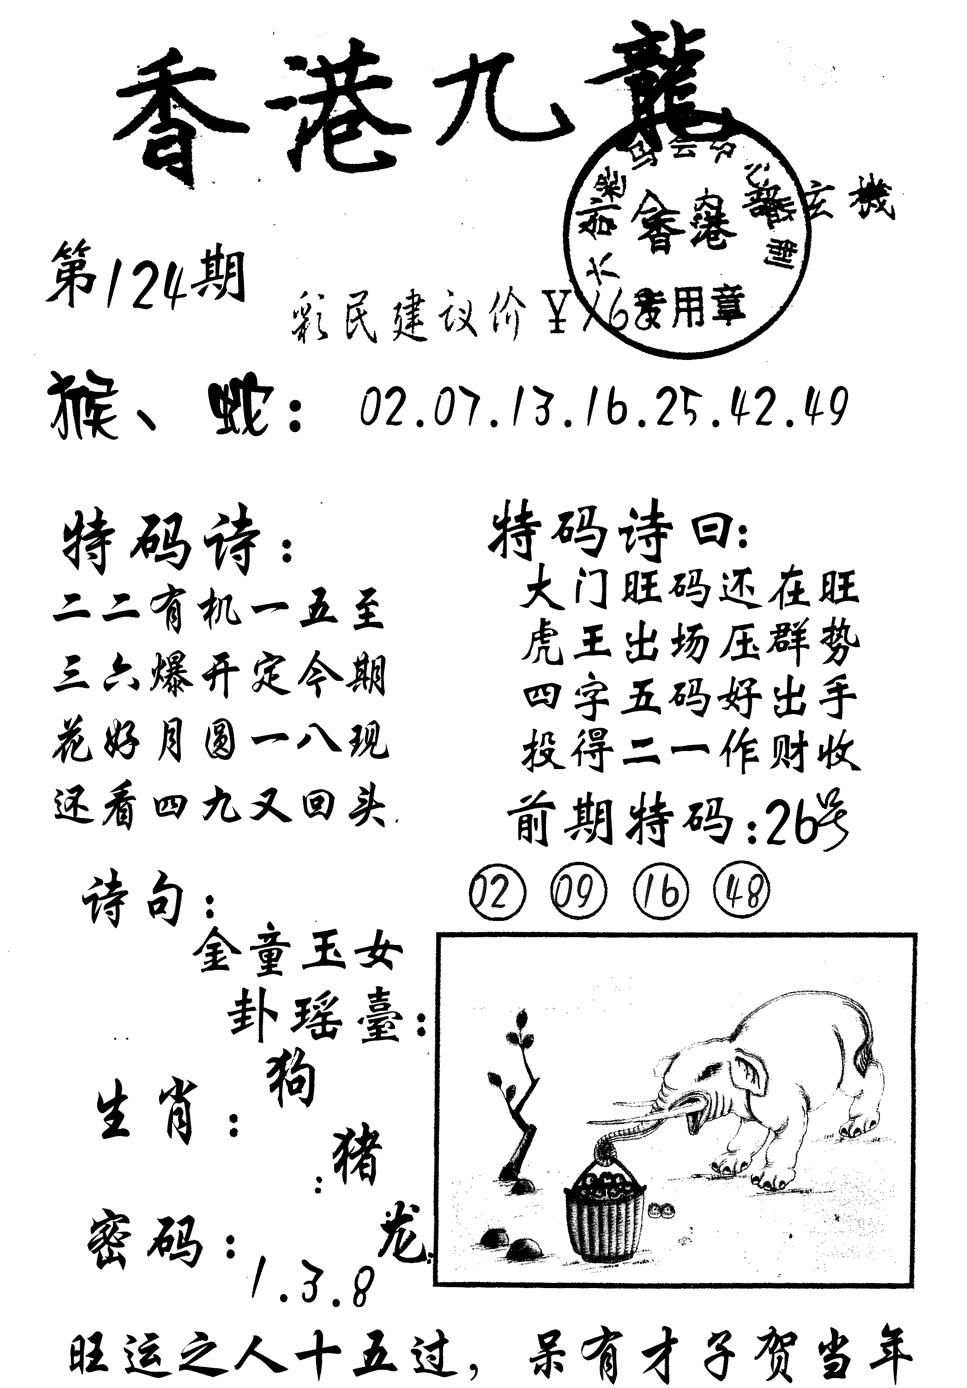 香港九龍
内
玄機
香港
专用章
第124期
彩民建议价¥168
猴、蛇：02.07.13.16.25.42.49
特码诗：
二二有机一五至
三六爆开定今期
花好月圆一八现
还看四九又回头
特码诗曰：
大门旺码还在旺
虎王出场压群势
四字五码好出手
投得二一作财收
前期特码：26号
02 09 16 48
诗句：
金童玉女
卦瑶臺：
生肖：狗
猪
龙
密码：1.3.8
旺运之人十五过，呆有才子贺当年